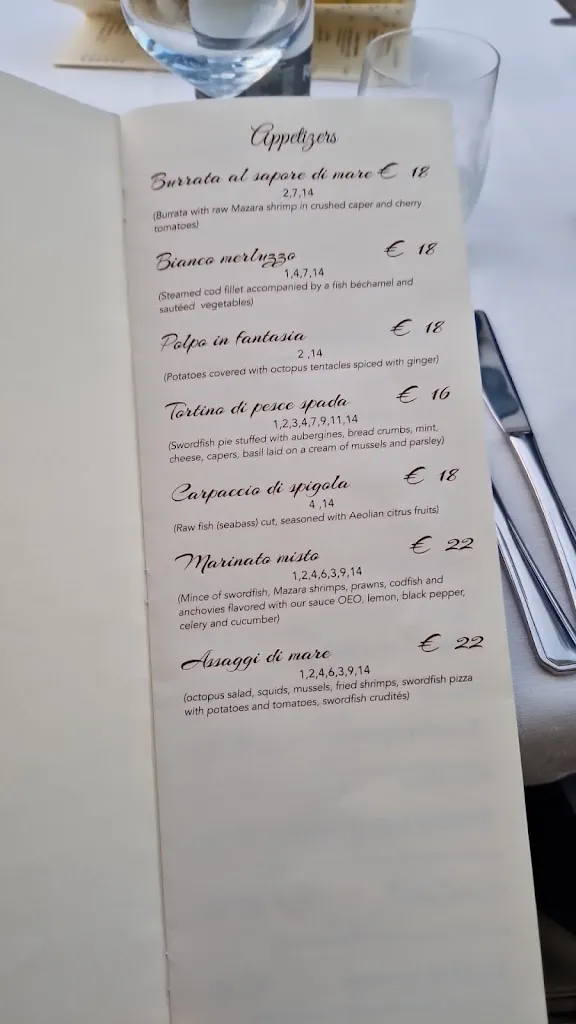 Appetizers
Burrata al sapore di mare € 18
2,7,14
(Burrata with raw Mazara shrimp in crushed caper and cherry
tomatoes)
Bianco merluzzo € 18
1,4,7,14
(Steamed cod fillet accompanied by a fish béchamel and
sautéed vegetables)
Polpo in fantasia € 18
2 ,14
(Potatoes covered with octopus tentacles spiced with ginger)
Tortino di pesce spada € 16
1,2,3,4,7,9,11,14
(Swordfish pie stuffed with aubergines, bread crumbs, mint,
cheese, capers, basil laid on a cream of mussels and parsley)
Carpaccio di spigola € 18
4 ,14
(Raw fish (seabass) cut, seasoned with Aeolian citrus fruits)
Marinato misto € 22
1,2,4,6,3,9,14
(Mince of swordfish, Mazara shrimps, prawns, codfish and
anchovies flavored with our sauce OEO, lemon, black pepper,
celery and cucumber)
Assaggi di mare € 22
1,2,4,6,3,9,14
(octopus salad, squids, mussels, fried shrimps, swordfish pizza
with potatoes and tomatoes, swordfish crudités)